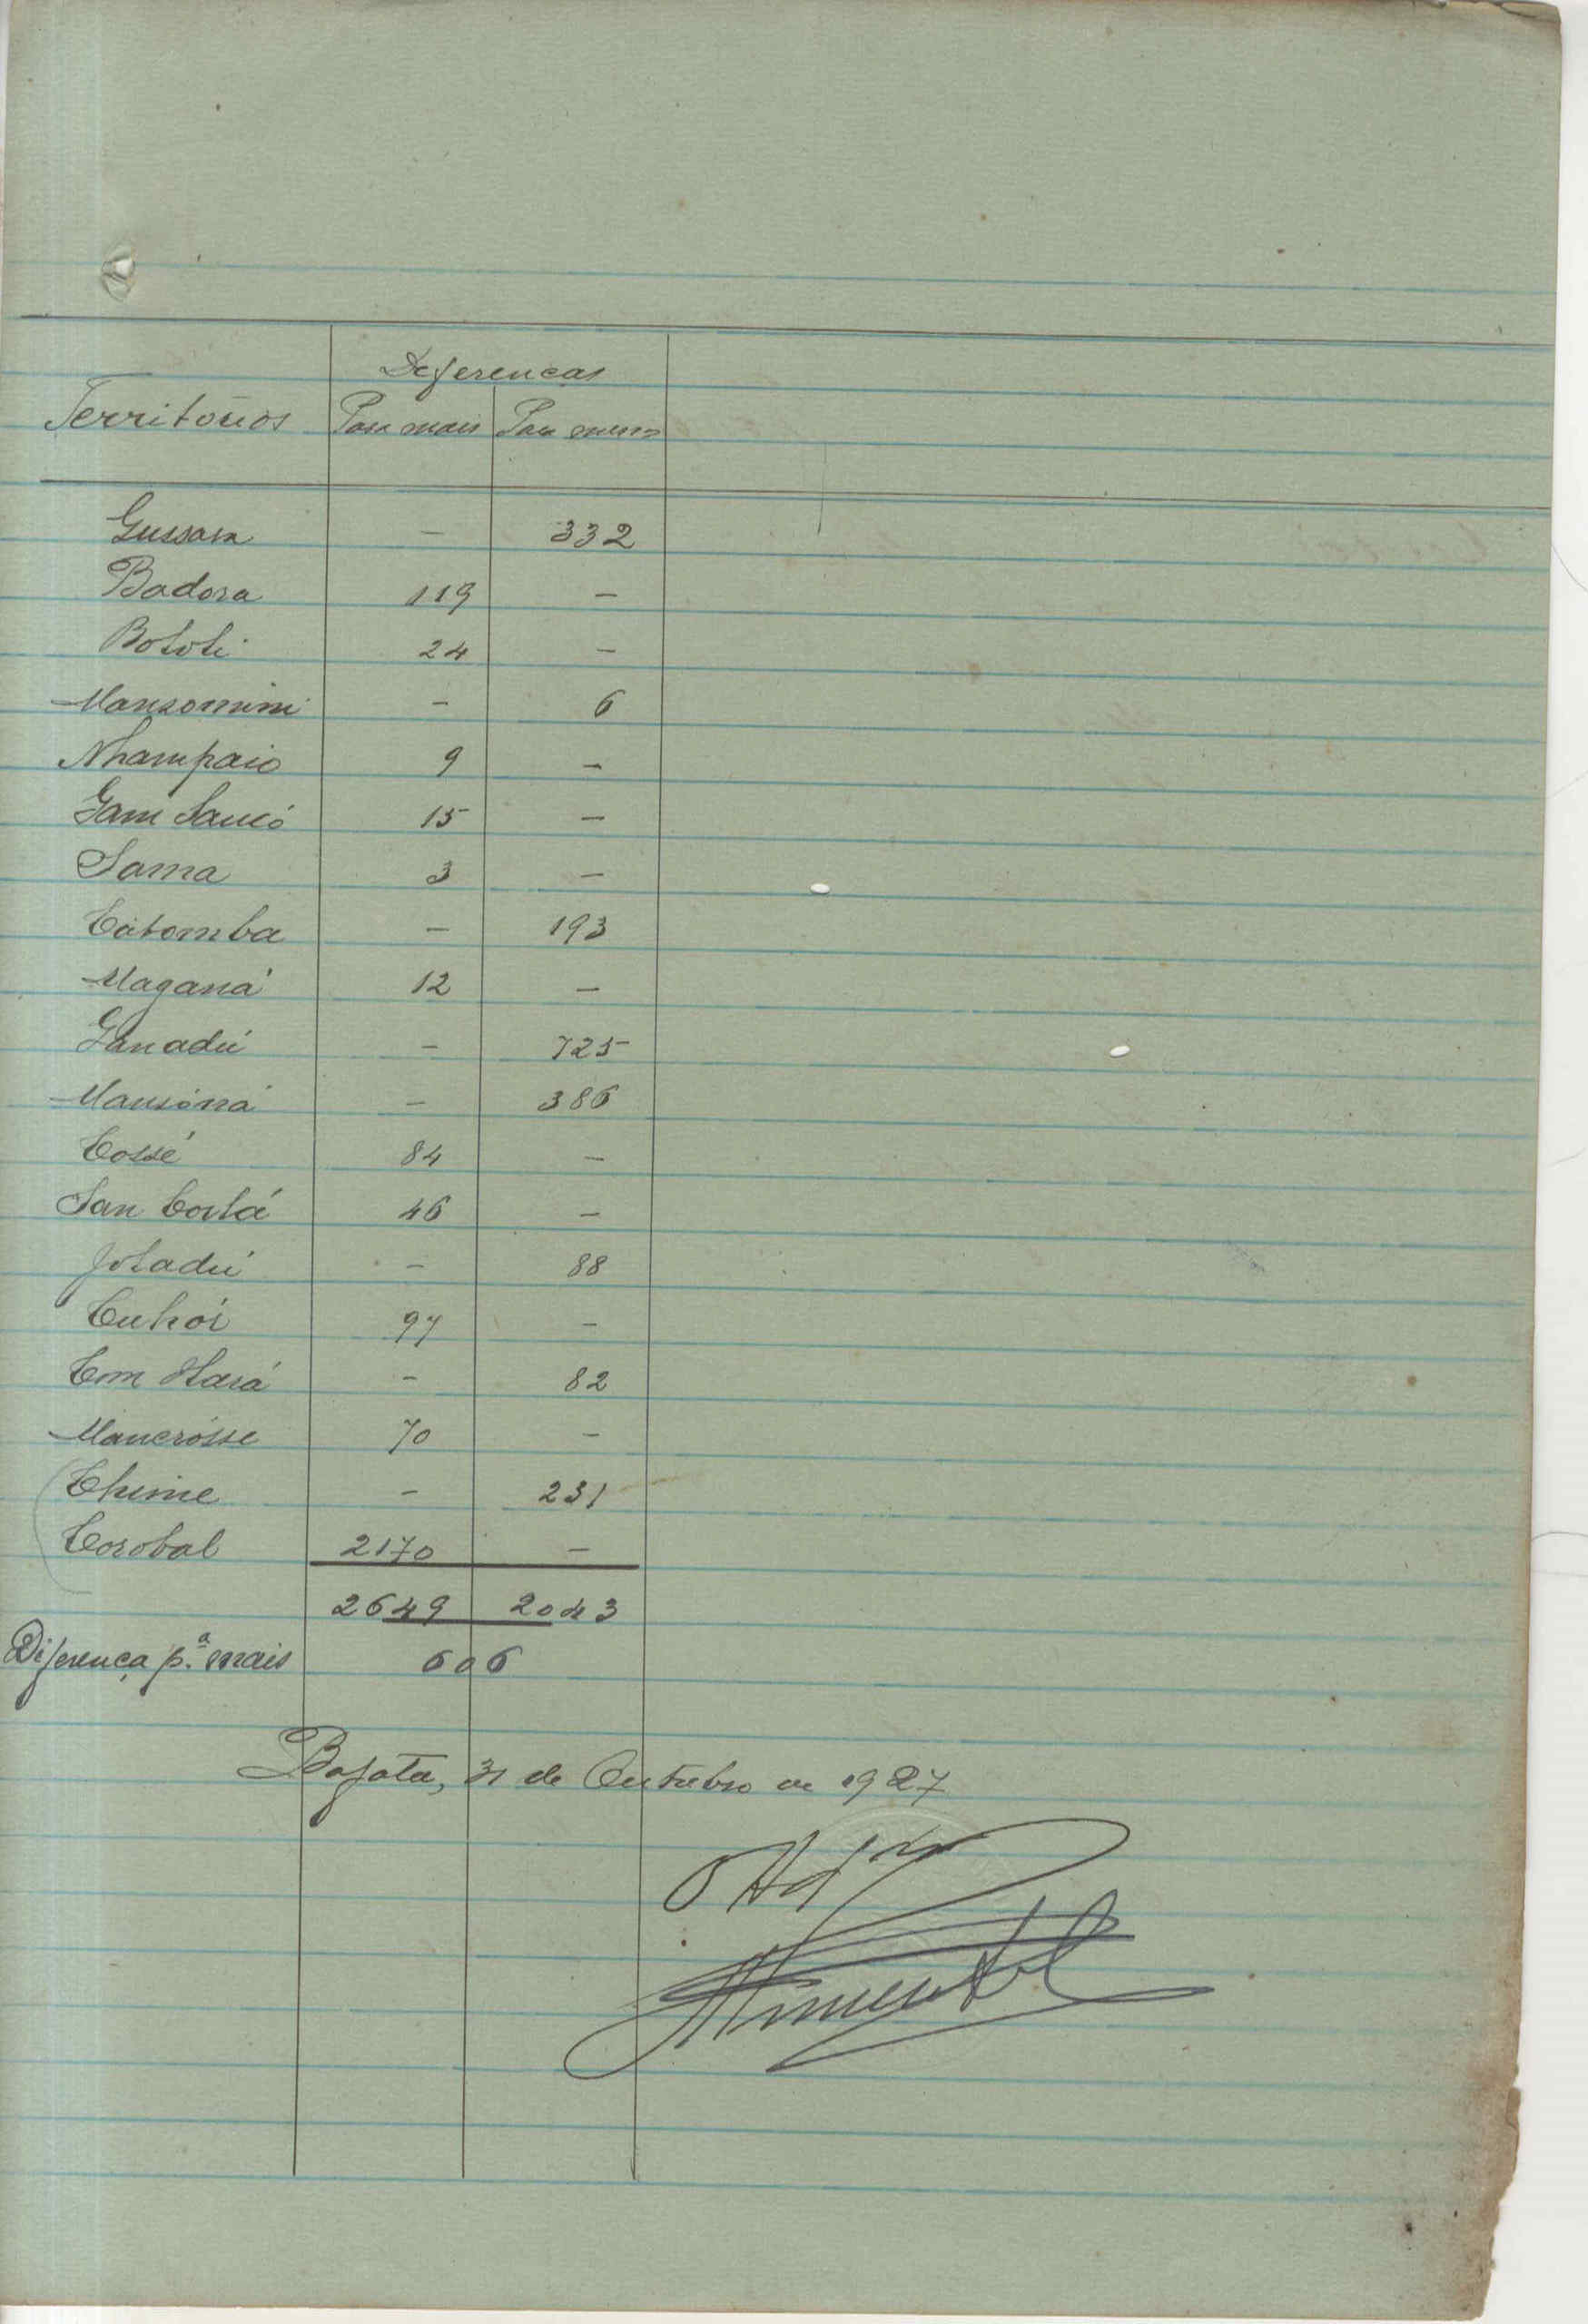 Deferenças
Territorios Para mais Para menos
Gussara - 332
Badora 119 -
Bototi 24 -
Mansomini - 6
Nhampaio 9 -
Gam Sancó 15 -
Sama 3 -
Catomba - 193
Maganá 12 -
Ganadú - 725
Mansoná - 386
Cossé 84 -
San Corlá 46 -
Joladú - 88
Cuhór 97 -
Com Hará - 82
Mancrósse 70 -
Chime - 231
Corobal 2170 -
2649 2043
Diferença p.ª mais 606
Bafata, 31 de Outubro de 1927
O Ad.or
Pimentel